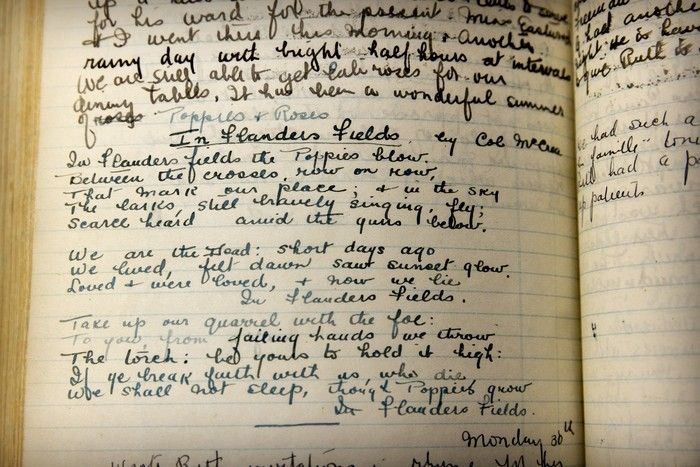 for his ward for the present. Miss
& I went there this morning. Another
rainy day with bright half hours at intervals
We are still able to get late roses for our
dining tables. It has been a wonderful summer
of roses Poppies & Roses
In Flanders Fields. by Col. McCrea
In Flanders fields the Poppies blow.
Between the crosses, row on row,
That mark our place; & in the sky
The larks still bravely singing, fly;
Scarce heard amid the guns below.
We are the Dead: short days ago
We lived, felt dawn saw sunset glow.
Loved & were loved, & now we lie
In Flanders Fields.
Take up our quarrel with the foe:
To you, from failing hands we throw
The torch: be yours to hold it high:
If ye break faith with us, who die
We shall not sleep, though Poppies grow
In Flanders Fields.
Monday 30th
Wrote Ruth invitations in rhyme for her
had another
Ruth to
had such a
famille"
had a
patients